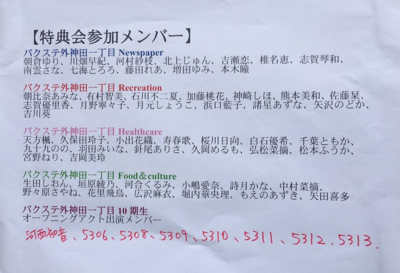 【特典会参加メンバー】
バクステ外神田一丁目 Newspaper
朝倉ゆり、川畑早紀、河村紗枝、北上じゅん、吉瀬恋、椎名恵、志賀琴和、
南雲さな、七海とろろ、藤田れあ、増田ゆみ、本木瞳
バクステ外神田一丁目 Recreation
朝比奈あみな、有村智美、石川不二夏、加藤桃花、神崎しほ、熊本美和、佐藤栞、
志賀優里香、月野寧々子、月元しょうこ、浜口藍子、諸星あずな、矢沢のどか、
吉川葵
バクステ外神田一丁目 Healthcare
天方楓、久保田玲子、小出花織、寿春歌、桜川日向、白石優希、千葉ともか、
九十九のの、羽田みいな、針尾ありさ、久岡めるも、弘松菜摘、松本ふうか、
宮野ねり、吉岡美玲
バクステ外神田一丁目 Food＆culture
生田しおん、垣原綾乃、河合くるみ、小嶋愛奈、詩月かな、中村菜摘、
野々原さやね、花里飛鳥、広沢麻衣、堀内華央理、もえのあずき、矢田喜多
バクステ外神田一丁目 10 期生
オープニングアクト出演メンバー
5306、5308、5309、5310、5311、5312、5313.